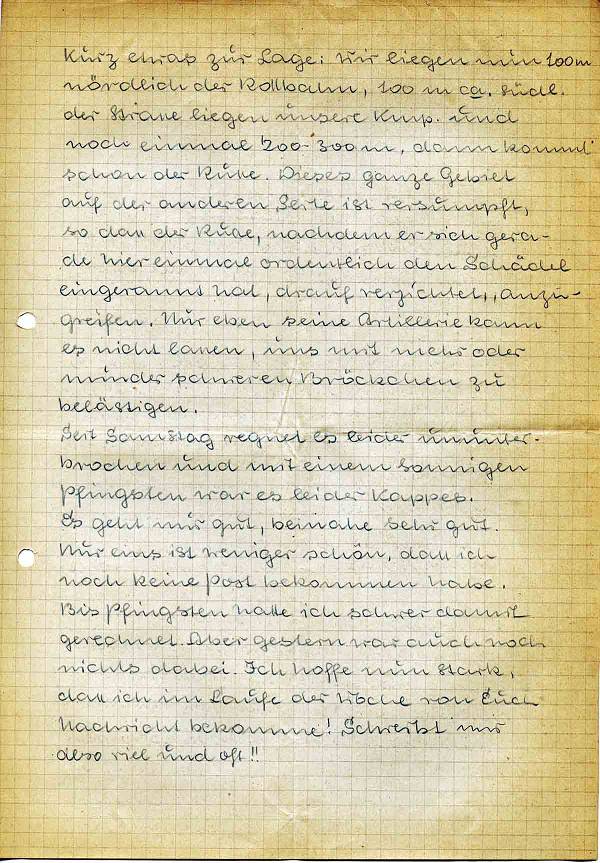 Kurz etwas zur Lage: Wir liegen nun 100m
nördlich der Rollbahn, 100 m ca. südl.
der Straße liegen unsere Kmp. und
noch einmal 200-300m, dann kommt
schon der Ruße. Dieses ganze Gebiet
auf der anderen Seite ist versumpft,
so daß der Ruße, nachdem er sich gera-
de hier einmal ordentlich den Schädel
eingerannt hat, drauf verzichtet, anzu-
greifen. Nur eben seine Artillerie kann
es nicht laßen, uns mit mehr oder
münder schweren Bröckchen zu
belästigen.
Seit Samstag regnet es leider ununter-
brochen und mit einem sonnigen
Pfingsten war es leider Kappes.
Es geht mir gut, beinahe sehr gut.
Nur eins ist weniger schön, daß ich
noch keine Post bekommen habe.
Bis Pfingsten hatte ich schwer damit
gerechnet. Aber gestern war auch noch
nichts dabei. Ich hoffe nun stark,
daß ich im Laufe der Woche von Euch
Nachricht bekomme! Schreibt mir
also viel und oft!!